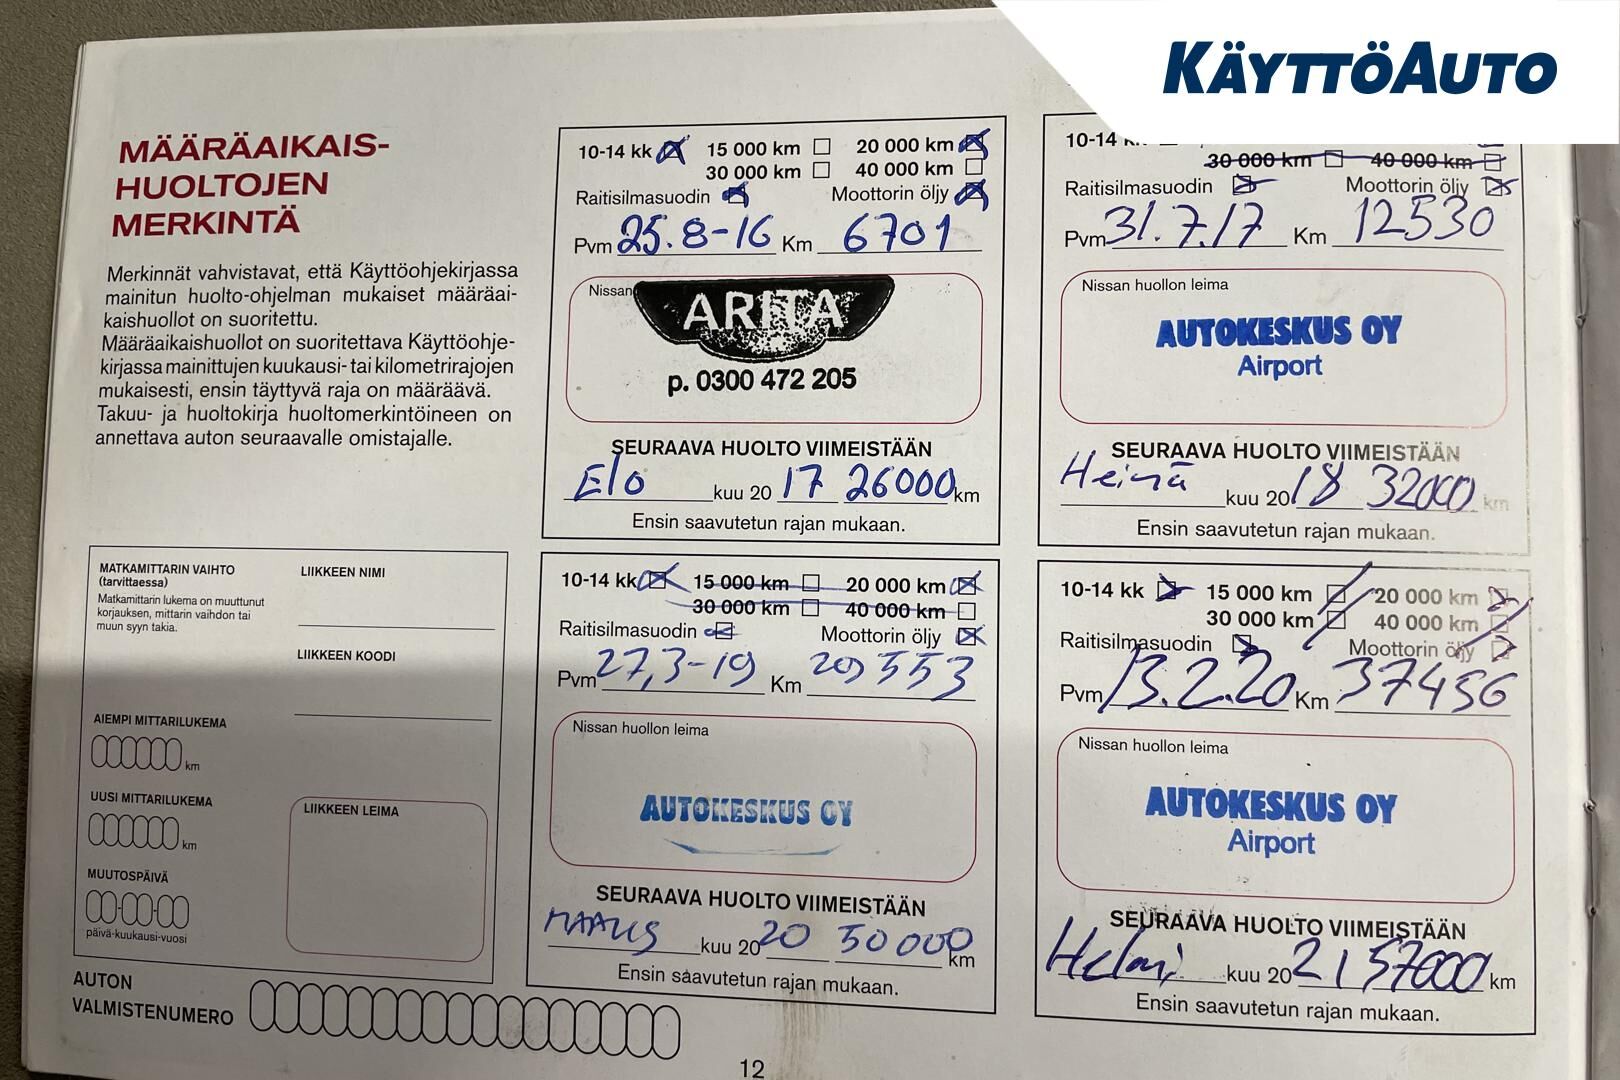 KÄYTTÖAUTO
MÄÄRÄAIKAIS-
HUOLTOJEN
MERKINTÄ
Merkinnät vahvistavat, että Käyttöohjekirjassa
mainitun huolto-ohjelman mukaiset määräai-
kaishuollot on suoritettu.
Määräaikaishuollot on suoritettava Käyttöohje-
kirjassa mainittujen kuukausi- tai kilometrirajojen
mukaisesti, ensin täyttyvä raja on määräävä.
Takuu- ja huoltokirja huoltomerkintöineen on
annettava auton seuraavalle omistajalle.
10-14 kk 15 000 km 20 000 km
30 000 km 40 000 km
Raitisilmasuodin Moottorin öljy
Pvm 25.8-16 Km 6701
Nissan
ARITA
p. 0300 472 205
SEURAAVA HUOLTO VIIMEISTÄÄN
Elo kuu 20 17 26000 km
Ensin saavutetun rajan mukaan.
10-14
30 000 km 40 000 km
Raitisilmasuodin Moottorin öljy
Pvm 31.7.17 Km 12530
Nissan huollon leima
AUTOKESKUS OY
Airport
SEURAAVA HUOLTO VIIMEISTÄÄN
Heinä kuu 20 18 32000 km
Ensin saavutetun rajan mukaan.
MATKAMITTARIN VAIHTO
(tarvittaessa)
Matkamittarin lukema on muuttunut
korjauksen, mittarin vaihdon tai
muun syyn takia.
LIIKKEEN NIMI
LIIKKEEN KOODI
AIEMPI MITTARILUKEMA
km
UUSI MITTARILUKEMA
km
MUUTOSPÄIVÄ
päivä-kuukausi-vuosi
LIIKKEEN LEIMA
10-14 kk 15 000 km 20 000 km
30 000 km 40 000 km
Raitisilmasuodin Moottorin öljy
Pvm 27,3-19 Km 29553
Nissan huollon leima
AUTOKESKUS OY
SEURAAVA HUOLTO VIIMEISTÄÄN
MAALIS kuu 20 20 50000 km
Ensin saavutetun rajan mukaan.
10-14 kk 15 000 km 20 000 km
30 000 km 40 000 km
Raitisilmasuodin Moottorin öljy
Pvm 13.2.20 Km 37456
Nissan huollon leima
AUTOKESKUS OY
Airport
SEURAAVA HUOLTO VIIMEISTÄÄN
Helmi kuu 20 21 57000 km
Ensin saavutetun rajan mukaan.
AUTON
VALMISTENUMERO
12